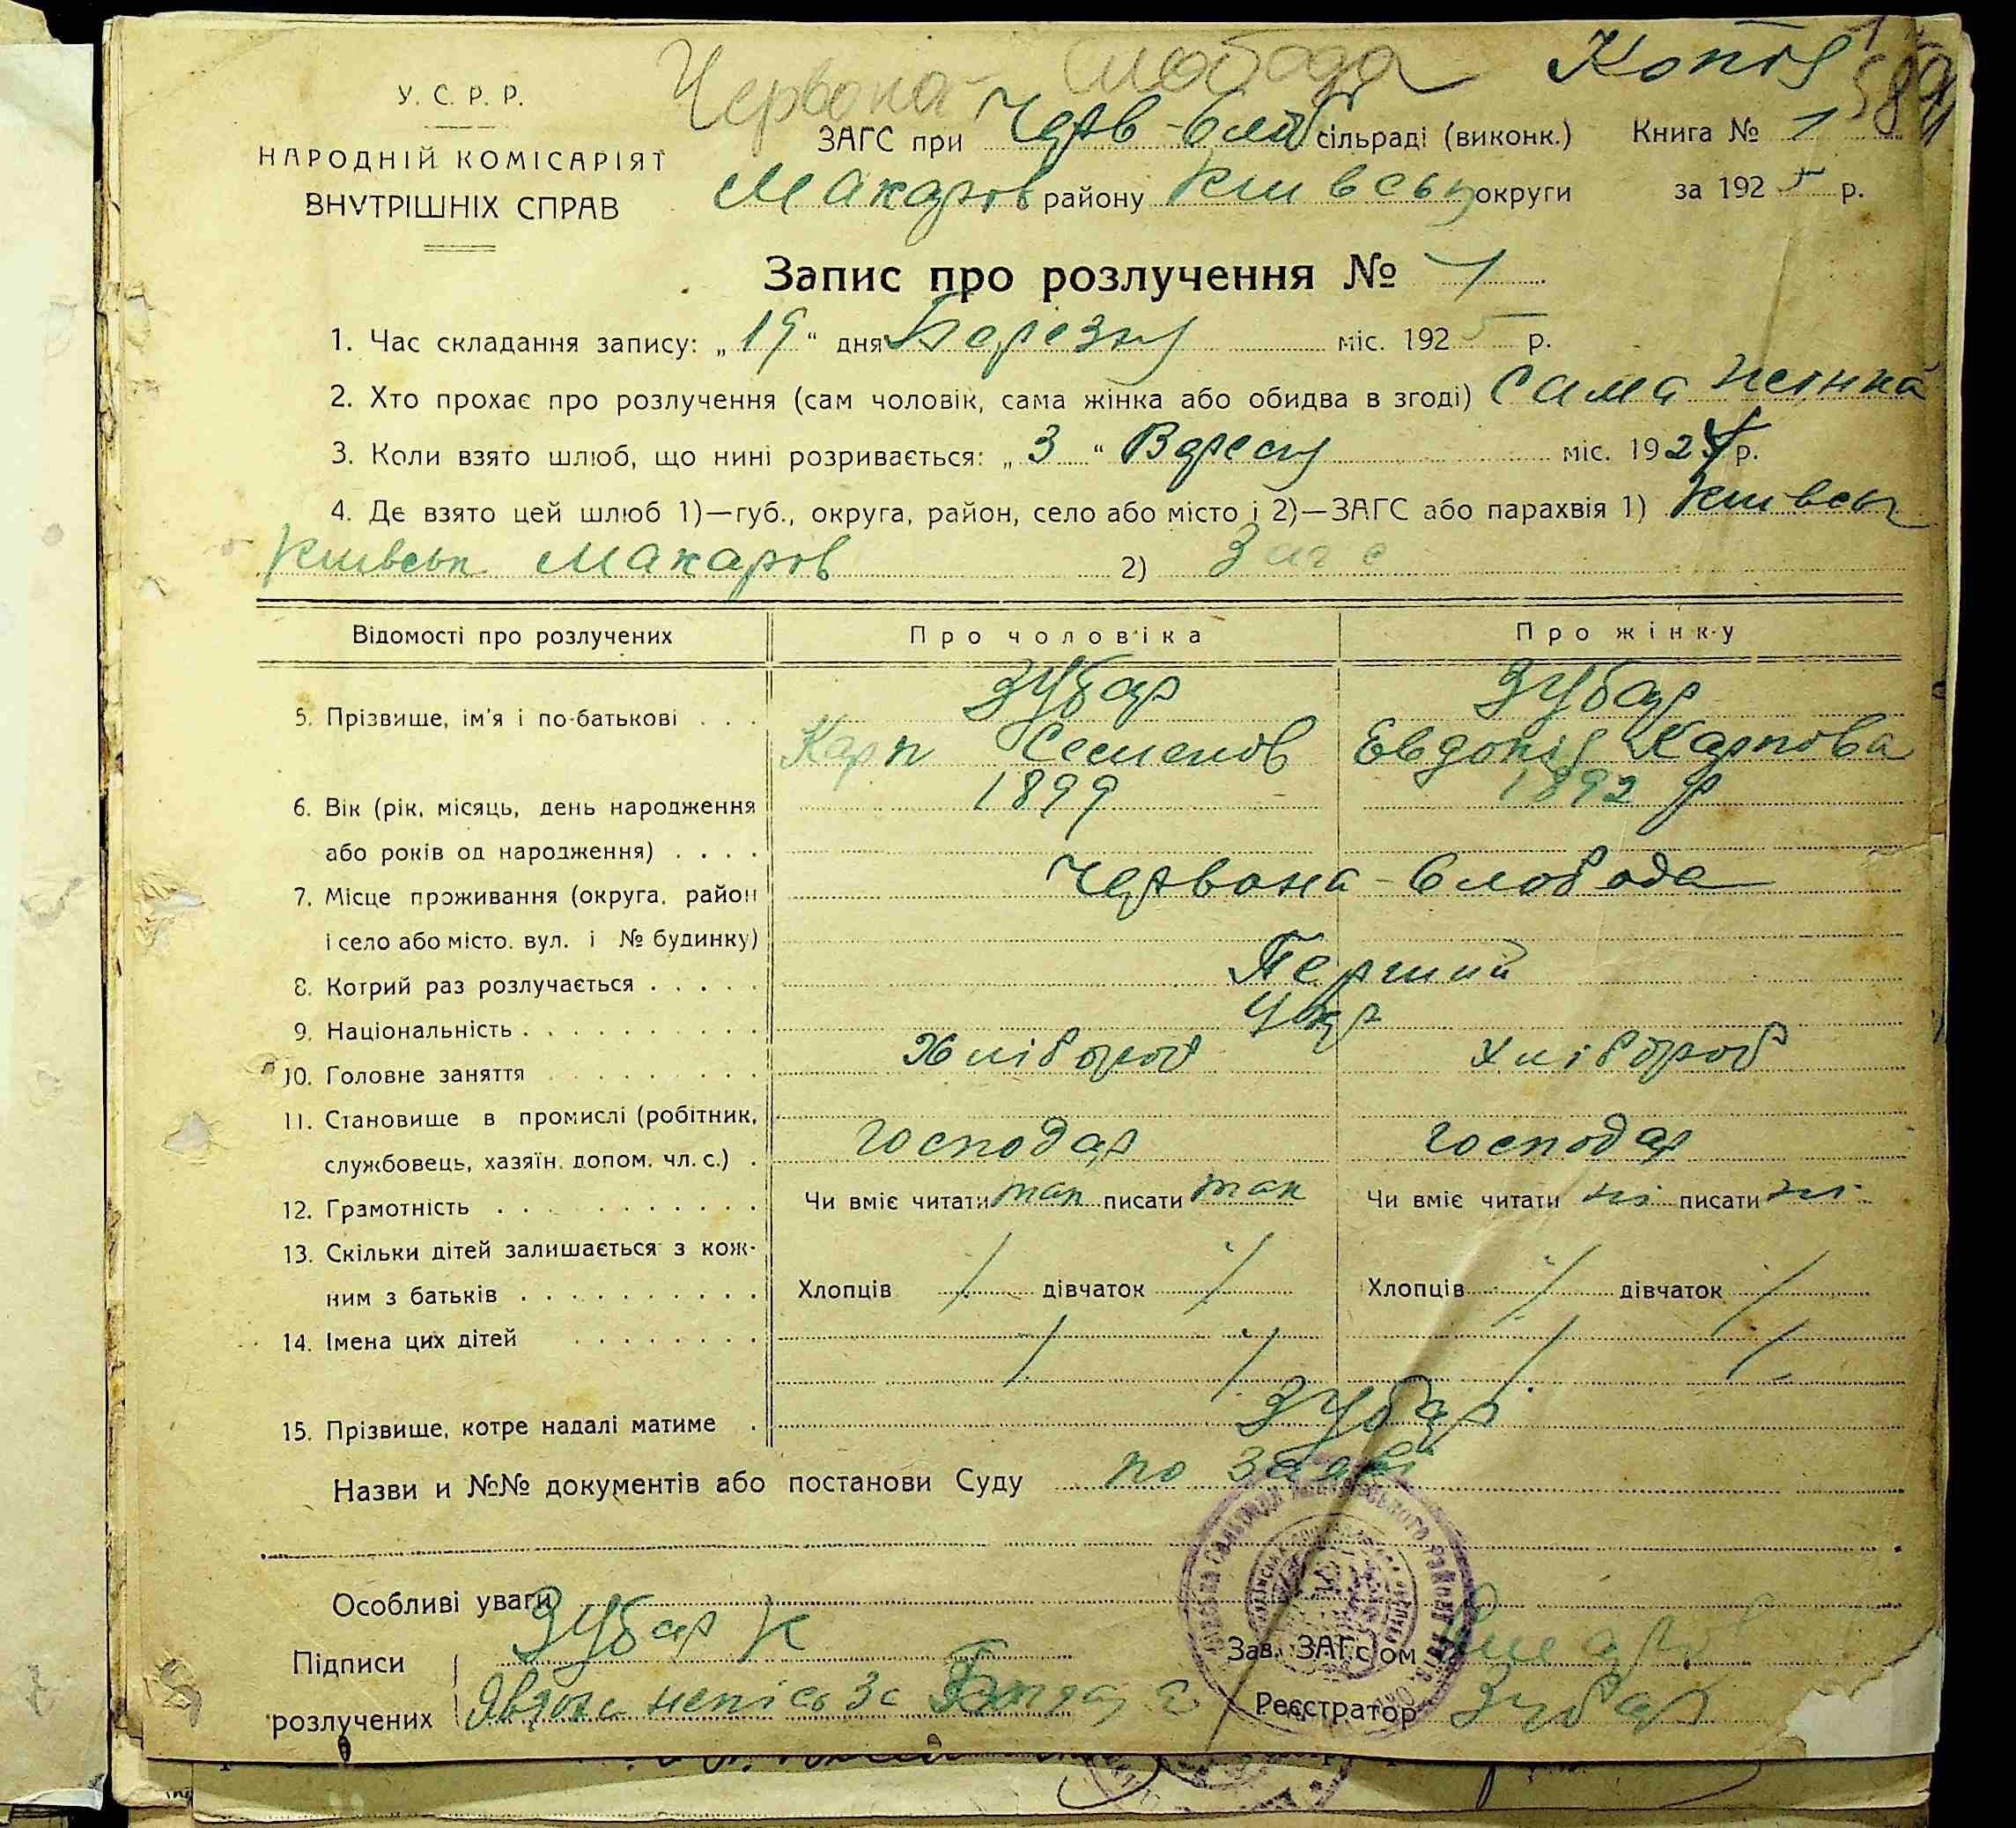 Червона-Слобода Копія
У. С. Р. Р.
НАРОДНІЙ КОМІСАРІЯТ
ВНУТРІШНІХ СПРАВ
ЗАГС при Черв-Слоб сільраді (виконк.) Книга № 1
Макаров району Київськ округи за 1925 р.
Запис про розлучення № 1
1. Час складання запису: „19“ дня Березня міс. 1925 р.
2. Хто прохає про розлучення (сам чоловік, сама жінка або обидва в згоді) Сама жінка
3. Коли взято шлюб, що нині розривається: „3“ Вересня міс. 1924 р.
4. Де взято цей шлюб 1)—губ., округа, район, село або місто і 2)—ЗАГС або парахвія 1) Київськ
Київськ Макаров 2) Загс
Відомості про розлучених Про чоловіка Про жінку
5. Прізвище, ім'я і по-батькові . . . Зубар Зубар
Карп Семенов Евдокія Карпова
6. Вік (рік, місяць, день народження 1899 1892 р
або років од народження) . . . .
7. Місце проживання (округа, район Червона-Слобода
і село або місто. вул. і № будинку)
8. Котрий раз розлучається . . . . . Перший
9. Національність . . . . . . . . . . Укр
10. Головне заняття . . . . . . . . . Хлібороб Хлібороб
11. Становище в промислі (робітник,
службовець, хазяїн, допом. чл. с.) . господар господар
12. Грамотність . . . . . . . . . . . Чи вміє читати так писати так Чи вміє читати ні писати ні
13. Скільки дітей залишається з кож-
ним з батьків . . . . . . . . . . Хлопців / дівчаток / Хлопців / дівчаток /
14. Імена цих дітей . . . . . . . / / / /
15. Прізвище, котре надалі матиме . Зубар
Назви и №№ документів або постанови Суду по заяві
Особливі уваги
Підписи Зубар К Зав. ЗАГС'ом
розлучених за Реєстратор Зубар